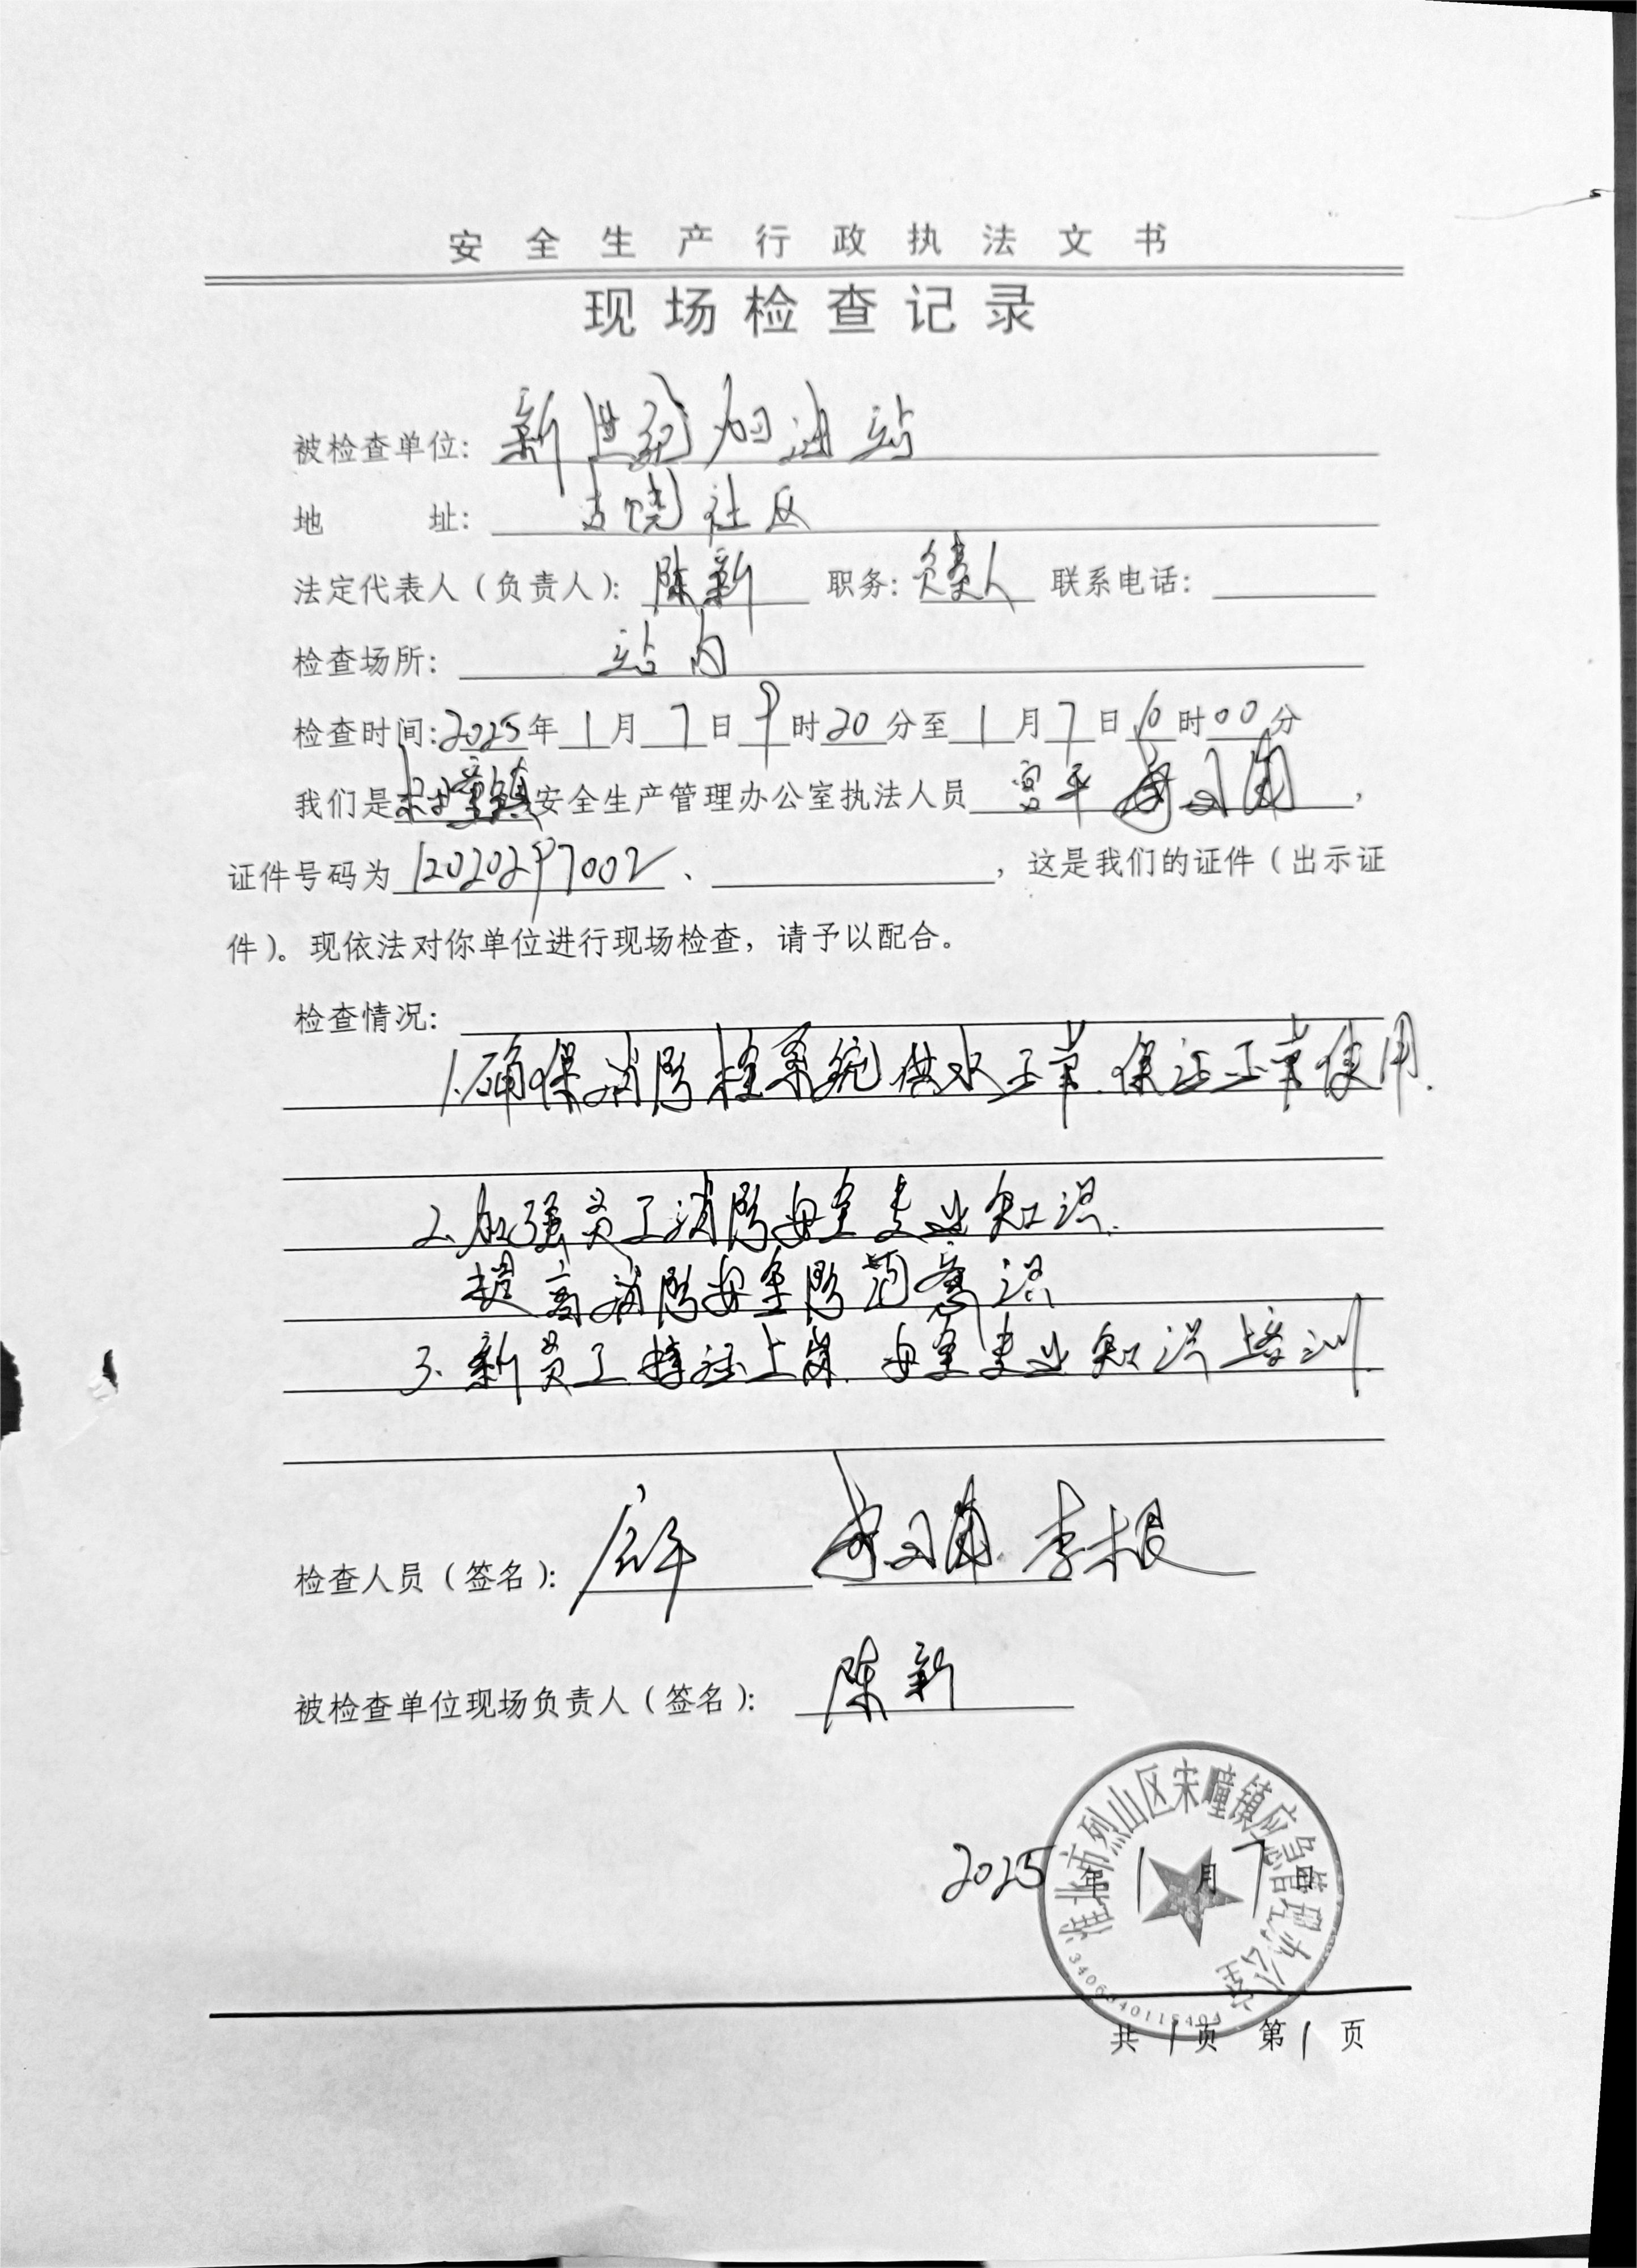 安全生产行政执法文书
现场检查记录
被检查单位: 新世纪加油站
地 址: 古饶社区
法定代表人(负责人): 陈新 职务: 负责人 联系电话:
检查场所: 站内
检查时间: 2025年1月7日9时20分至1月7日10时00分
我们是宋疃镇安全生产管理办公室执法人员 宫平
证件号码为12020297002、 ,这是我们的证件(出示证
件)。现依法对你单位进行现场检查,请予以配合。
检查情况:
1.确保消防栓系统供水正常.保证正常使用.
2.加强员工消防安全专业知识.
提高消防安全防范意识
3.新员工持证上岗.安全专业知识培训.
检查人员(签名): 李根
被检查单位现场负责人(签名): 陈新
淮北市烈山区宋疃镇应急管理办公室
2025年1月7日
共1页 第1页